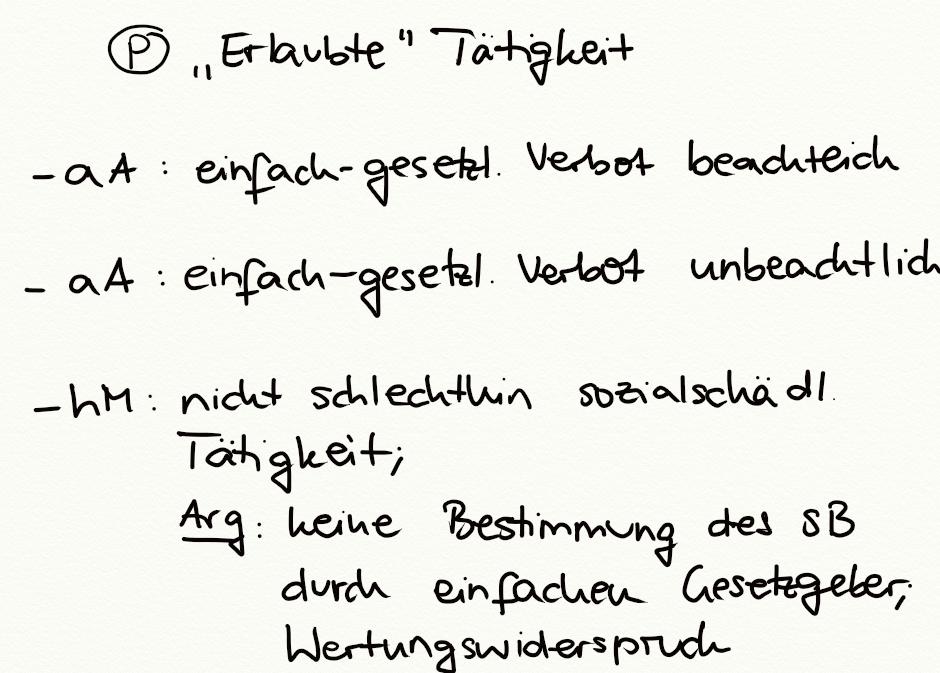 Ⓟ „Erlaubte" Tätigkeit
- aA : einfach-gesetzl. Verbot beachtlich
- aA : einfach-gesetzl. Verbot unbeachtlich
- hM : nicht schlechthin sozialschädl.
Tätigkeit;
Arg: keine Bestimmung des SB
durch einfachen Gesetzgeber;
Wertungswiderspruch